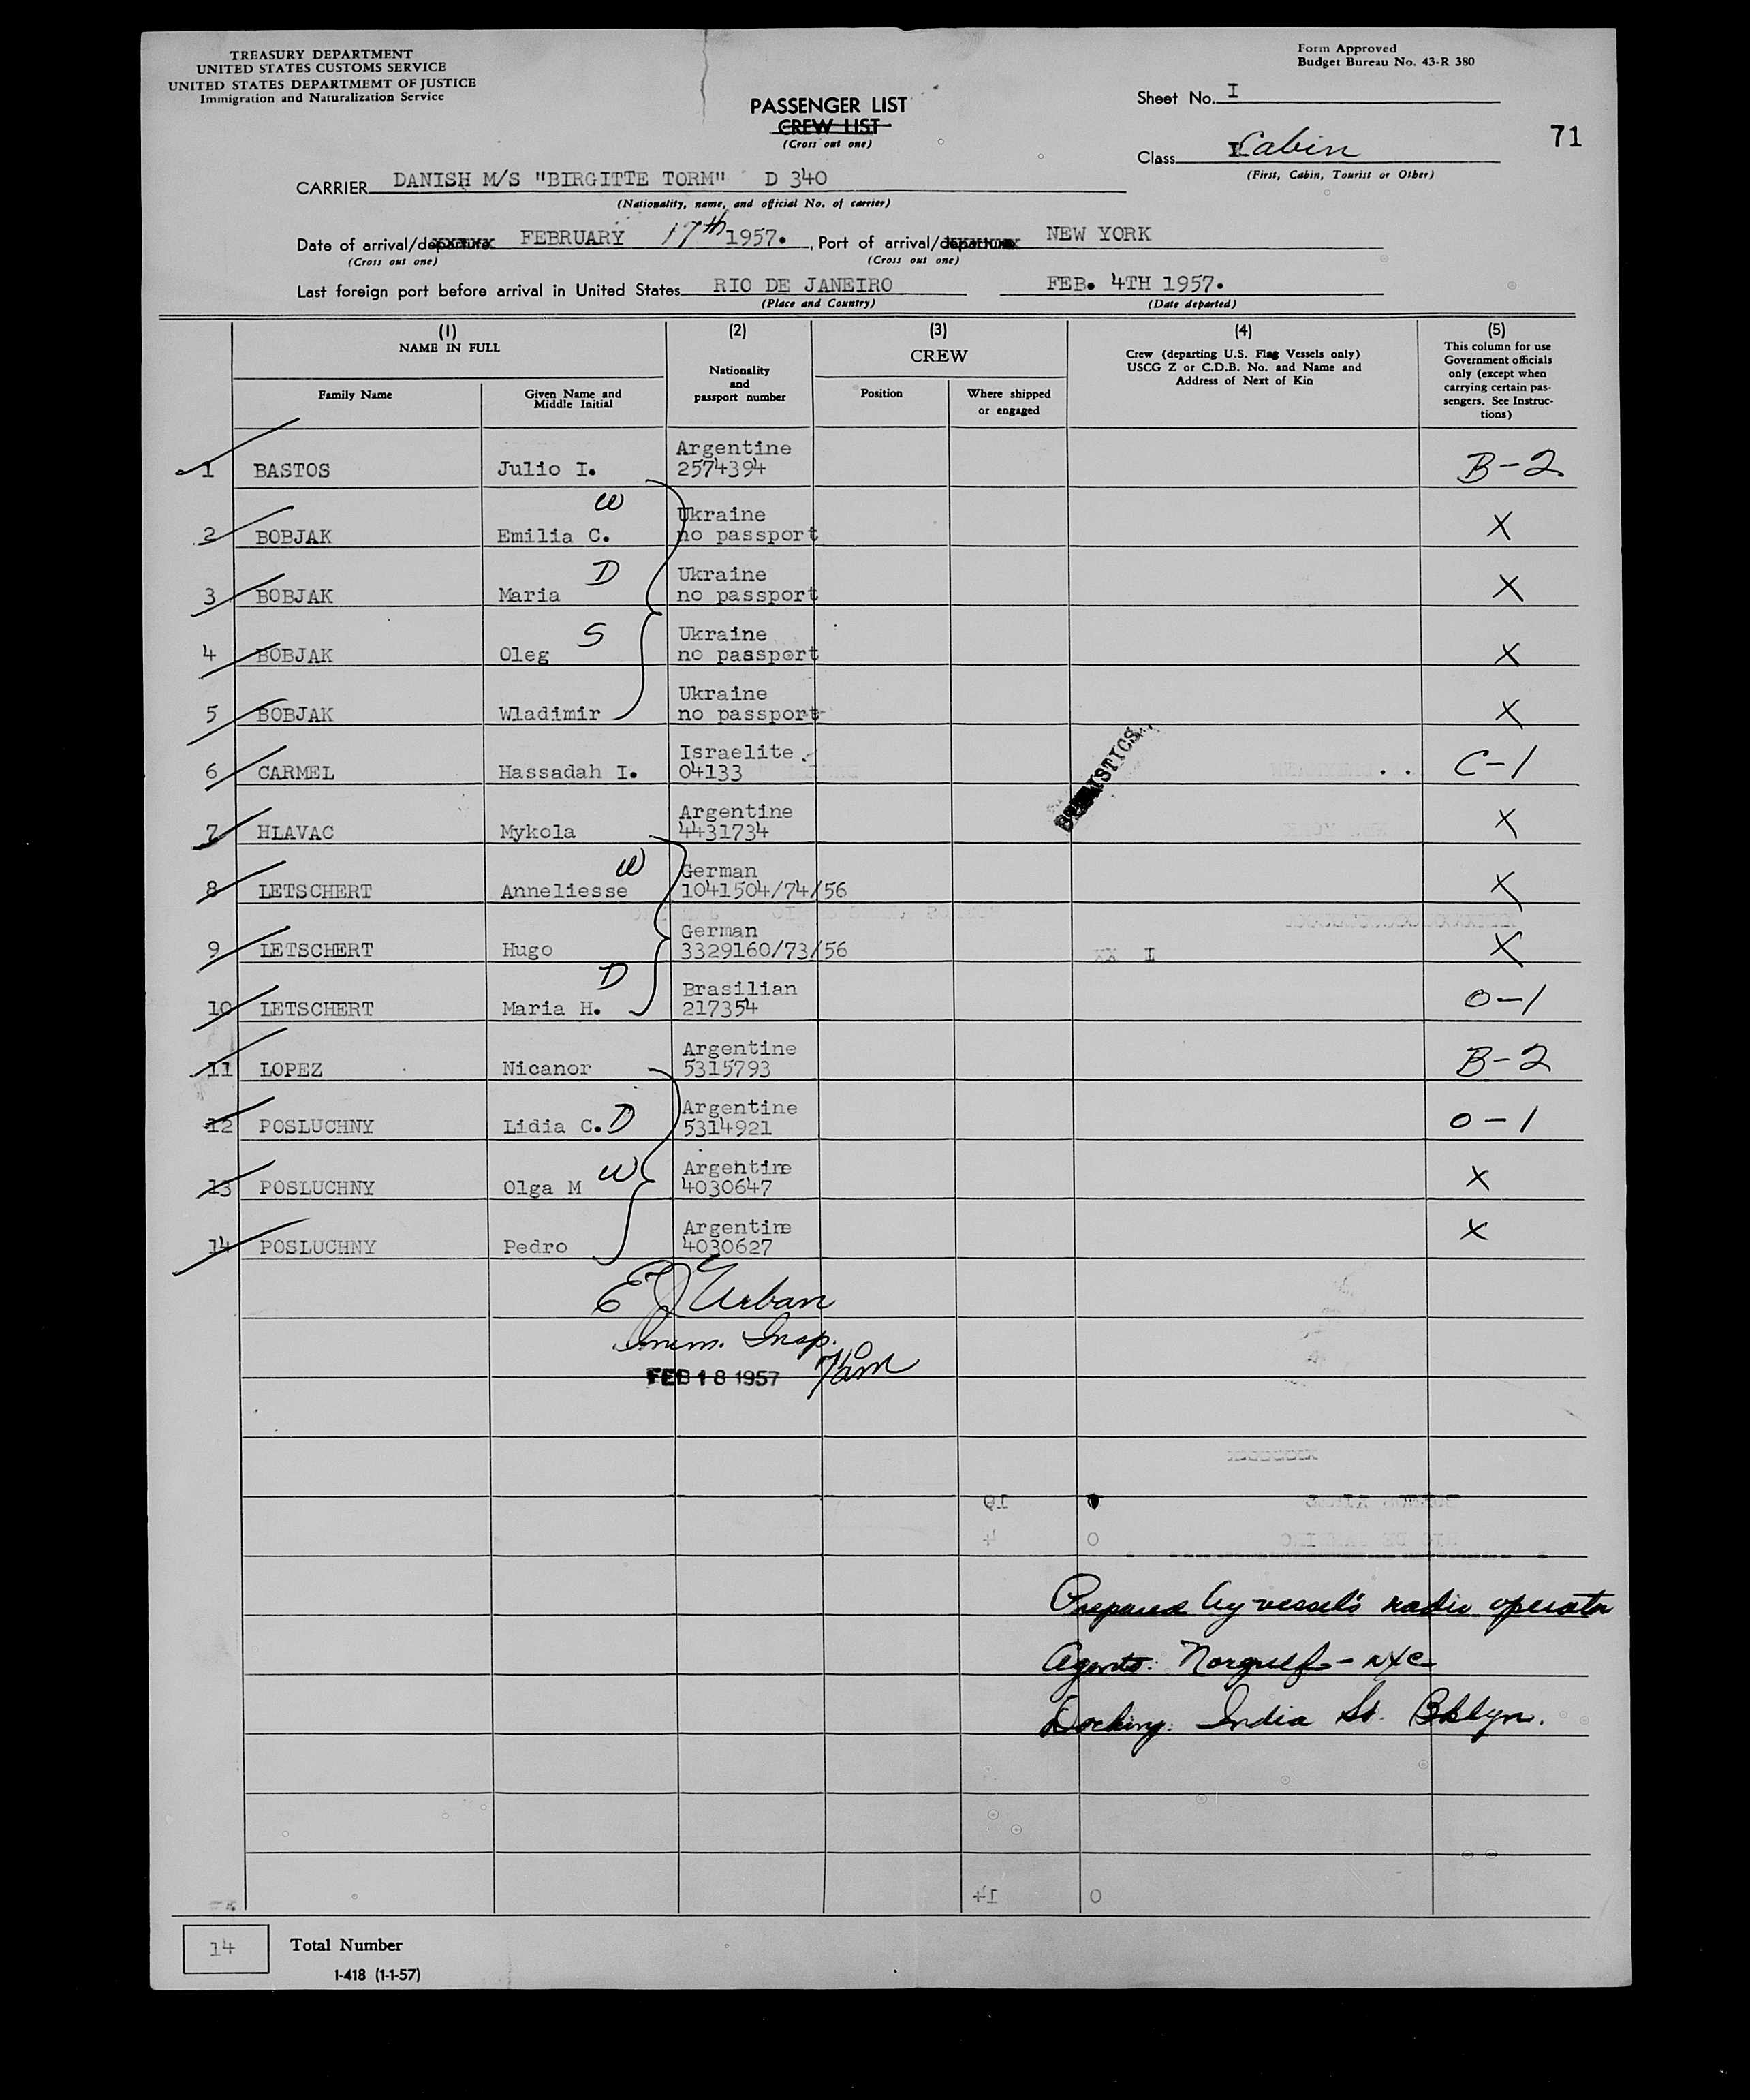 TREASURY DEPARTMENT
UNITED STATES CUSTOMS SERVICE
UNITED STATES DEPARTMEMT OF JUSTICE
Immigration and Naturalization Service
Form Approved
Budget Bureau No. 43-R 380
PASSENGER LIST
CREW LIST
(Cross out one)
Sheet No. I
71
Class Cabin
(First, Cabin, Tourist or Other)
CARRIER DANISH M/S "BIRGITTE TORM" D 340
(Nationality, name, and official No. of carrier)
Date of arrival/departure FEBRUARY 17th 1957. , Port of arrival/departure NEW YORK
(Cross out one) (Cross out one)
Last foreign port before arrival in United States RIO DE JANEIRO FEB. 4TH 1957.
(Place and Country) (Date departed)
(1)
NAME IN FULL
Family Name
Given Name and
Middle Initial
(2)
Nationality
and
passport number
(3)
CREW
Position
Where shipped
or engaged
(4)
Crew (departing U.S. Flag Vessels only)
USCG Z or C.D.B. No. and Name and
Address of Next of Kin
(5)
This column for use
Government officials
only (except when
carrying certain pas-
sengers. See Instruc-
tions)
Argentine
1 BASTOS Julio I. 2574394 B-2
W Ukraine
2 BOBJAK Emilia C. no passport X
D Ukraine
3 BOBJAK Maria no passport X
S Ukraine
4 BOBJAK Oleg no passport X
Ukraine
5 BOBJAK Wladimir no passport X
Israelite
6 CARMEL Hassadah I. 04133 C-1
Argentine
7 HLAVAC Mykola 4431734 X
W German
8 LETSCHERT Anneliesse 1041504/74/56 X
German
9 LETSCHERT Hugo 3329160/73/56 X
D Brasilian
10 LETSCHERT Maria H. 217354 0-1
Argentine
11 LOPEZ Nicanor 5315793 B-2
Argentine
12 POSLUCHNY Lidia C. D 5314921 0-1
W Argentine
13 POSLUCHNY Olga M 4030647 X
Argentine
14 POSLUCHNY Pedro 4030627 X
E J Urban
Imm. Insp.
FEB 18 1957
Prepared by vessel's radio operator
Agents: Norgulf - NYC
Docking: India St. Bklyn.
14 Total Number
I-418 (1-1-57)